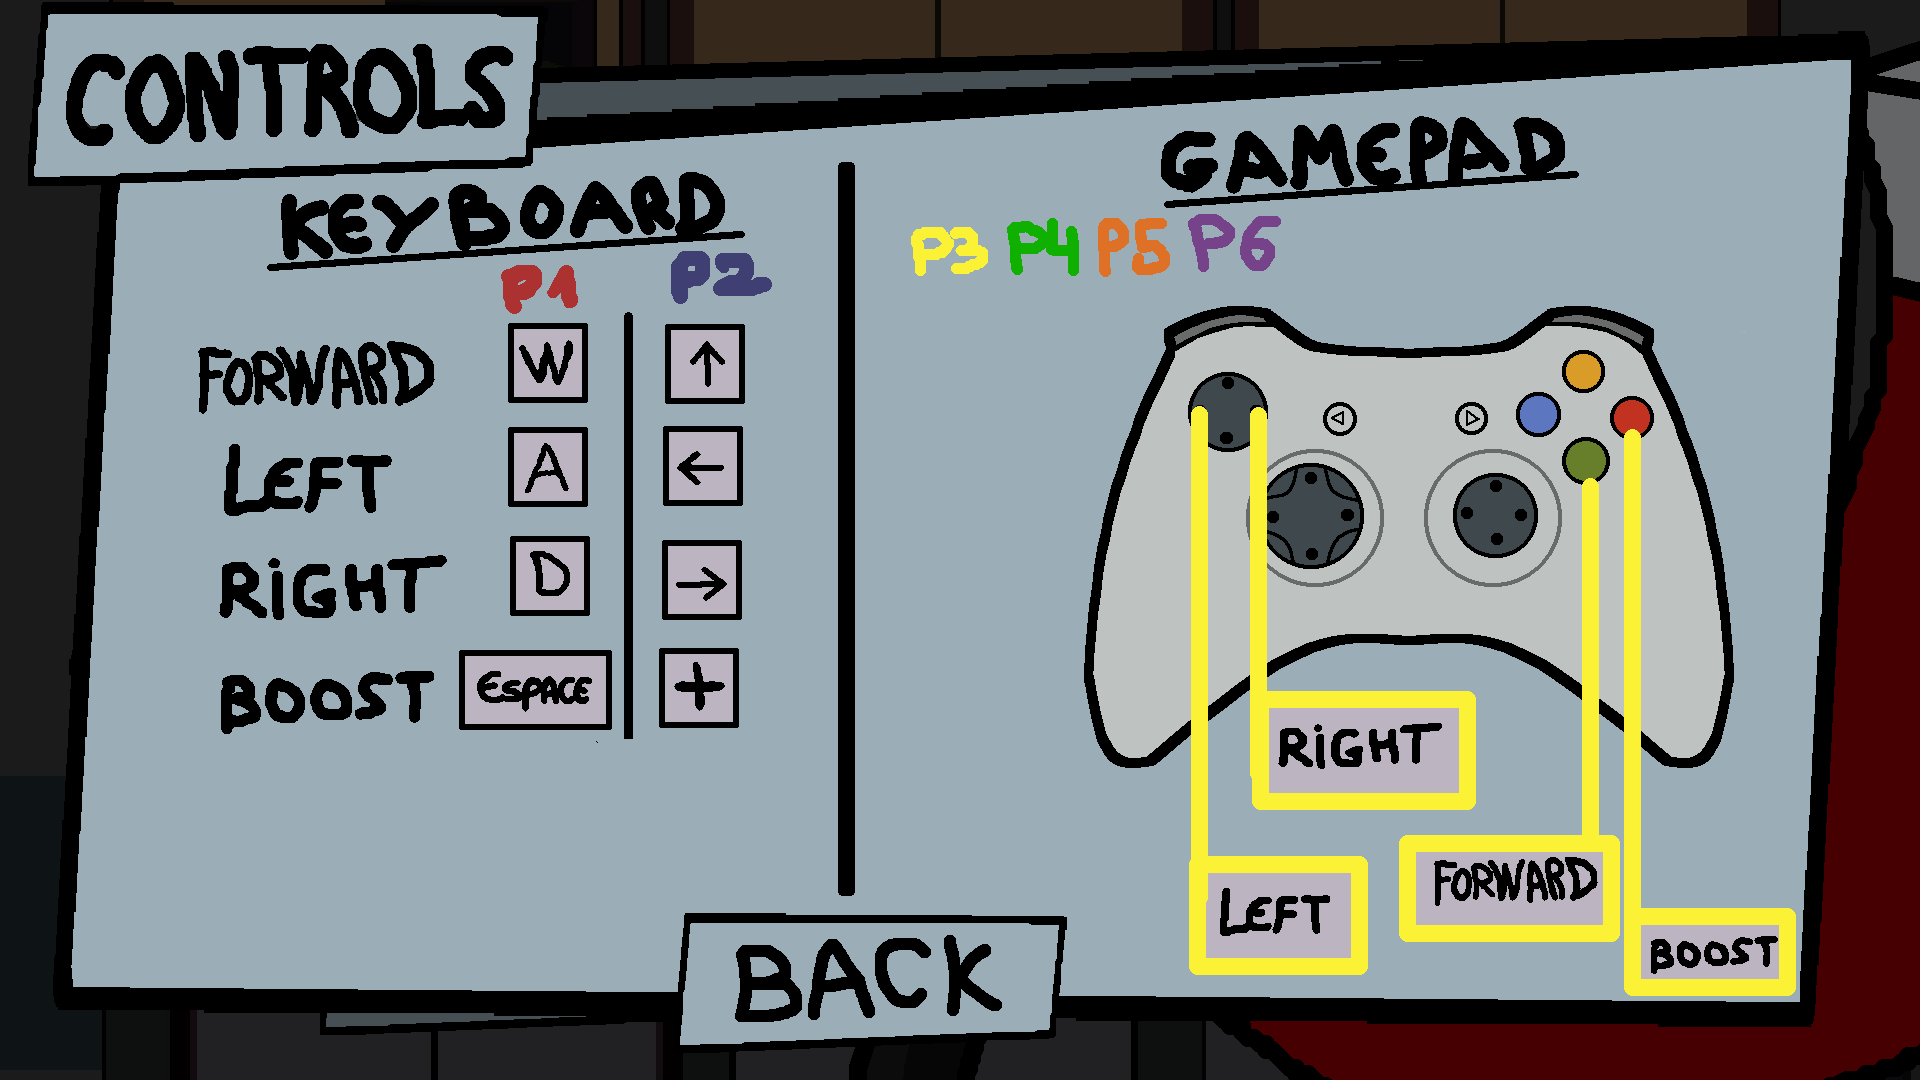 CONTROLS
KEYBOARD
P1 P2
FORWARD W ↑
LEFT A ←
RiGHT D →
BOOST ESPACE +
GAMEPAD
P3 P4 P5 P6
RiGHT
LEFT
FORWARD
BOOST
BACK